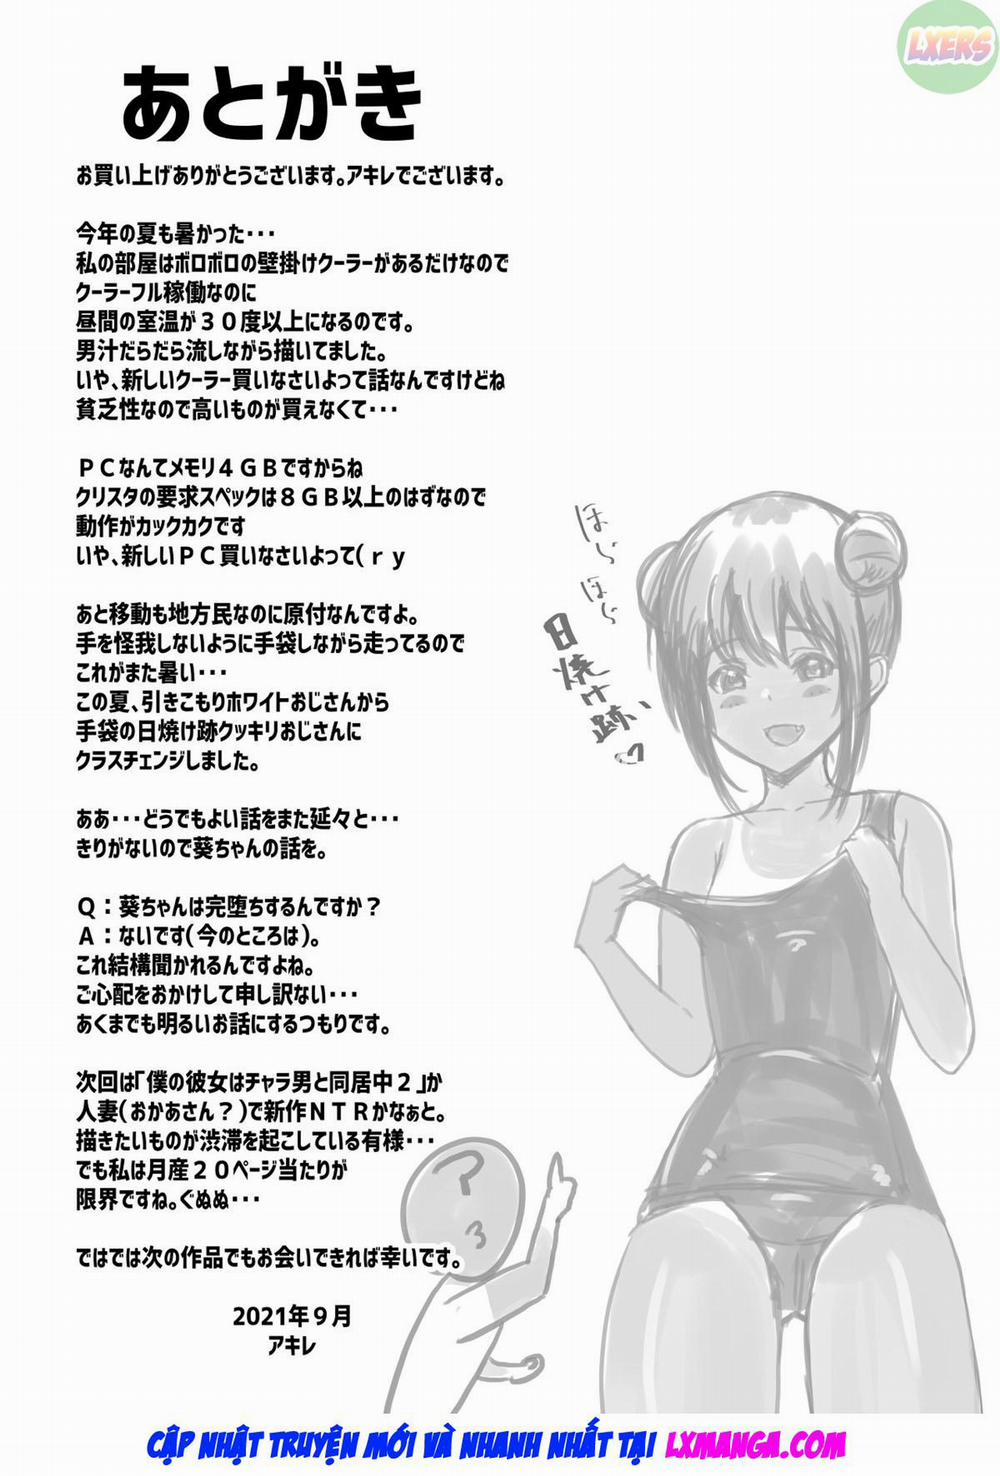 LXERS
あとがき
お買い上げありがとうございます。アキレでございます。
今年の夏も暑かった･･･
私の部屋はボロボロの壁掛けクーラーがあるだけなので
クーラーフル稼働なのに
昼間の室温が３０度以上になるのです。
男汁だらだら流しながら描いてました。
いや、新しいクーラー買いなさいよって話なんですけどね
貧乏性なので高いものが買えなくて･･･
ＰＣなんてメモリ４ＧＢですからね
クリスタの要求スペックは８ＧＢ以上のはずなので
動作がカックカクです
いや、新しいＰＣ買いなさいよって(ｒｙ
あと移動も地方民なのに原付なんですよ。
手を怪我しないように手袋しながら走ってるので
これがまた暑い･･･
この夏、引きこもりホワイトおじさんから
手袋の日焼け跡クッキリおじさんに
クラスチェンジしました。
ああ･･･どうでもよい話をまた延々と･･･
きりがないので葵ちゃんの話を。
Ｑ：葵ちゃんは完堕ちするんですか？
Ａ：ないです(今のところは)。
これ結構聞かれるんですよね。
ご心配をおかけして申し訳ない･･･
あくまでも明るいお話にするつもりです。
次回は｢僕の彼女はチャラ男と同居中２｣か
人妻(おかあさん？)で新作ＮＴＲかなぁと。
描きたいものが渋滞を起こしている有様･･･
でも私は月産２０ページ当たりが
限界ですね。ぐぬぬ･･･
ではでは次の作品でもお会いできれば幸いです。
2021年９月
アキレ
ほら
ほら
日焼け跡♡
ア
CẬP NHẬT TRUYỆN MỚI VÀ NHANH NHẤT TẠI LXMANGA.COM